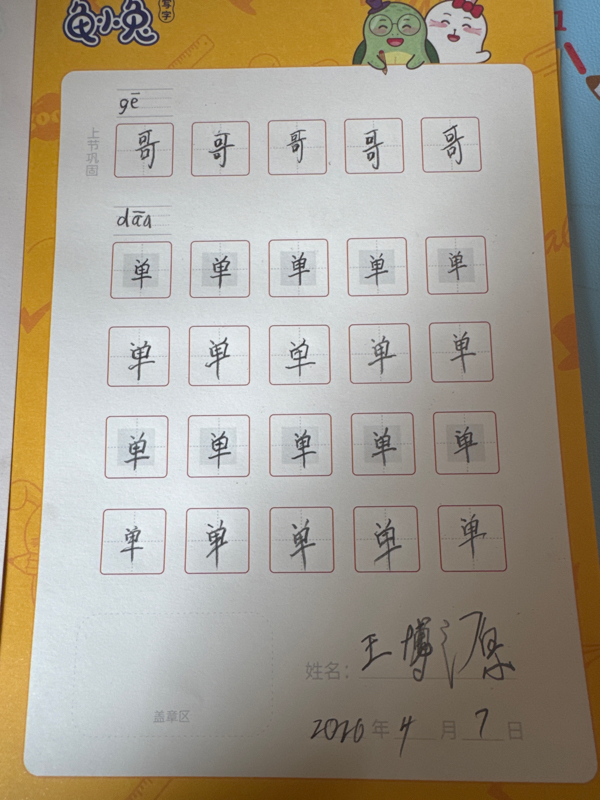 龟小兔
写字
gē
上节巩固
哥 哥 哥 哥 哥
dān
单 单 单 单 单
单 单 单 单 单
单 单 单 单 单
单 单 单 单 单
姓名: 王博源
盖章区
2026年4月7日